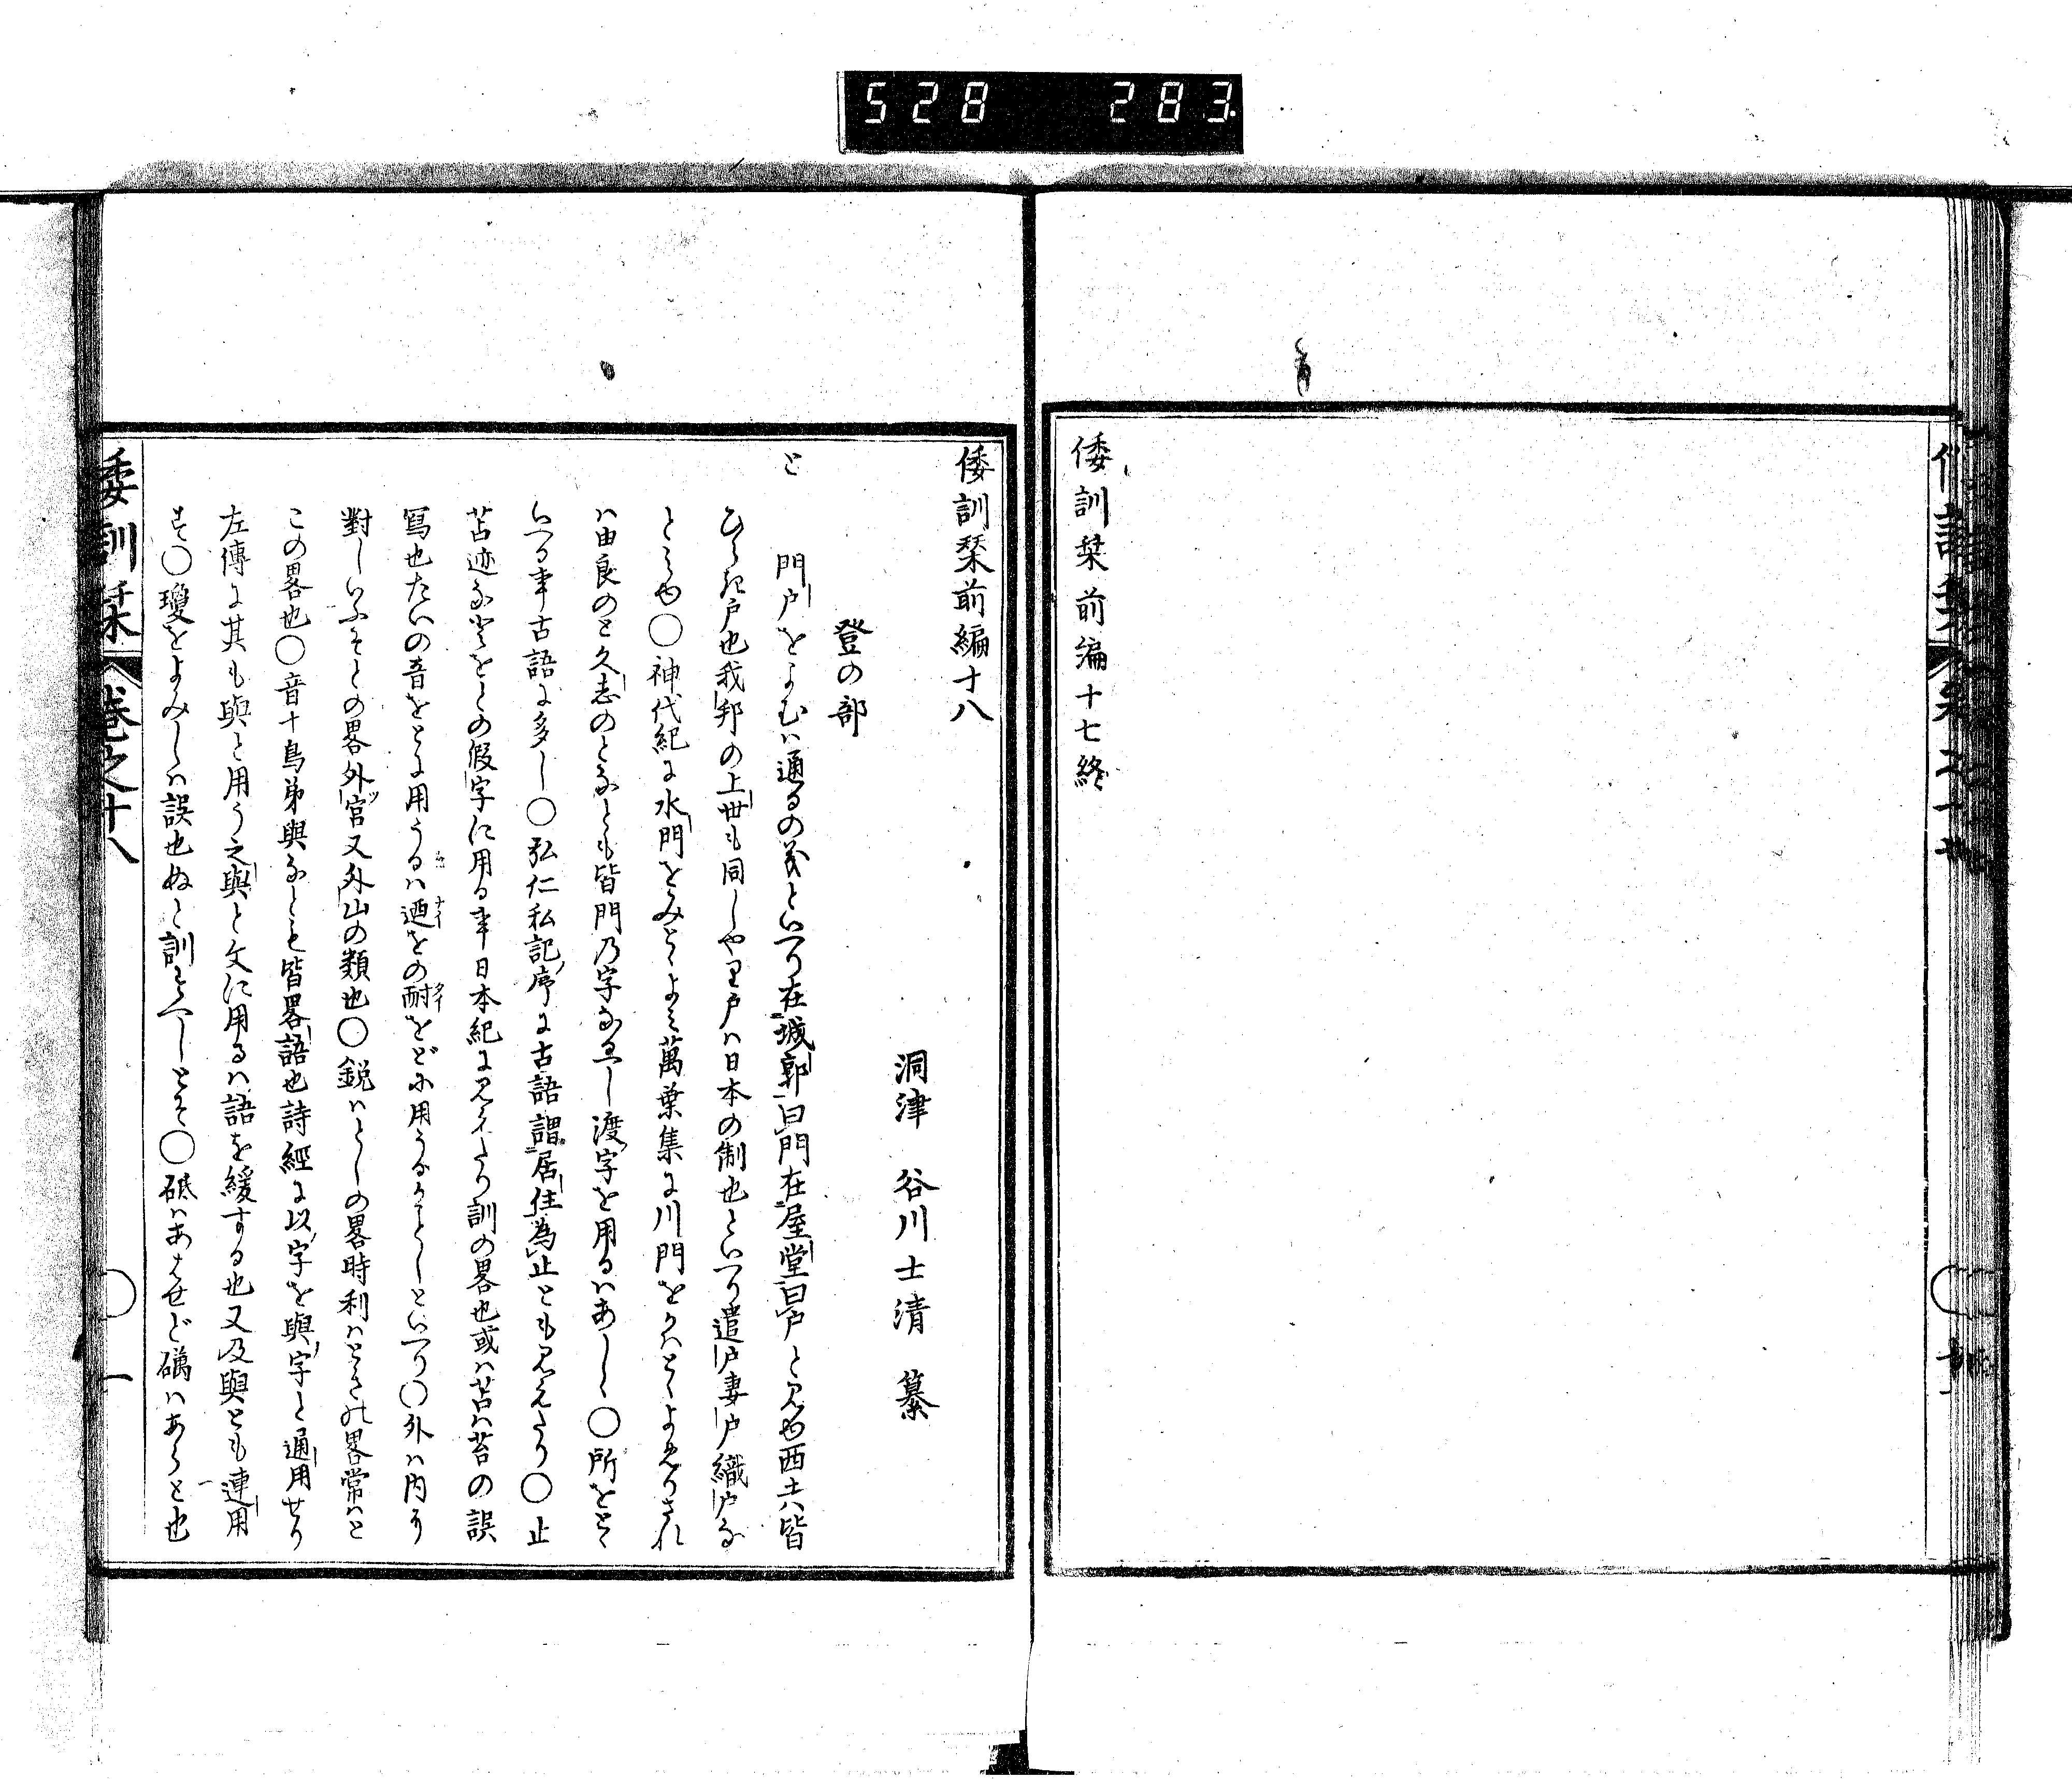 528 283
倭訓栞前編十七終
倭訓栞前編十八
洞津 谷川士清 纂
登の部
と
門戸をよむハ通るの義といへり在城郭曰門在屋堂曰戸と見ゆ西土ハ皆
ひらき戸也我邦の上世も同しやり戸ハ日本の制也といへり遣戸妻戸織戸な
とみゆ〇神代紀に水門をみとよみ萬葉集に川門をかハとゝよめりされ
ハ由良のと久志のとなとも皆門乃字なるへし渡字を用るハあしゝ〇所をとゝ
いへる事古語に多し〇弘仁私記序に古語謂居住為止とも見えたり〇止
苫迹などをとの假字に用る事日本紀に見えたり訓の畧也或ハ苫ハ苔の誤
寫也たいの音をとに用うるハ迺をの耐をどに用うるかことしといへり〇外ハ内に
對しいふそとの畧外宮又外山の類也〇鋭ハとしの畧時利ハときの畧常ハと
この畧也〇音十鳥弟與なとも皆畧語也詩經に以字を與字と通用せり
左傳に其も與と用う之與と文に用るハ語を緩する也又及與とも連用
す〇瓊をよみしハ誤也ぬと訓すへしとそ〇砥ハあはせど礪ハあらと也
倭訓栞 巻之十八 一